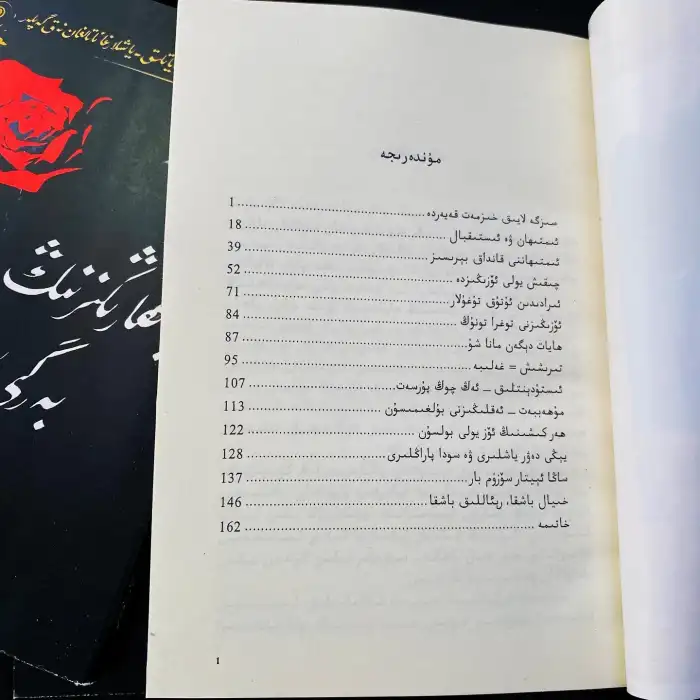 مۇندەرىجە
سىزگە لايىق خىزمەت قەيەردە........................1
ئىمتىھان ۋە ئىستىقبال........................18
ئىمتىھاننى قانداق بېرىسىز........................39
چىقىش يولى ئۆزىڭىزدە........................52
ئىرادىدىن ئۇتۇق تۇغۇلار........................71
ئۆزىڭىزنى توغرا تونۇڭ........................84
ھايات دېگەن مانا شۇ........................87
تىرىشىش = غەلىبە........................95
ئىستۇدېنتلىق ـ ئەڭ چوڭ پۇرسەت........................107
مۇھەببەت ـ ئەقلىڭىزنى بۇلغىمىسۇن........................113
ھەر كىشىنىڭ ئۆز يولى بولسۇن........................122
يېڭى دەۋر ياشلىرى ۋە سودا پاراڭلىرى........................128
ساڭا ئېيتار سۆزۈم بار........................137
خىيال باشقا، رېئاللىق باشقا........................146
خاتىمە........................162
1